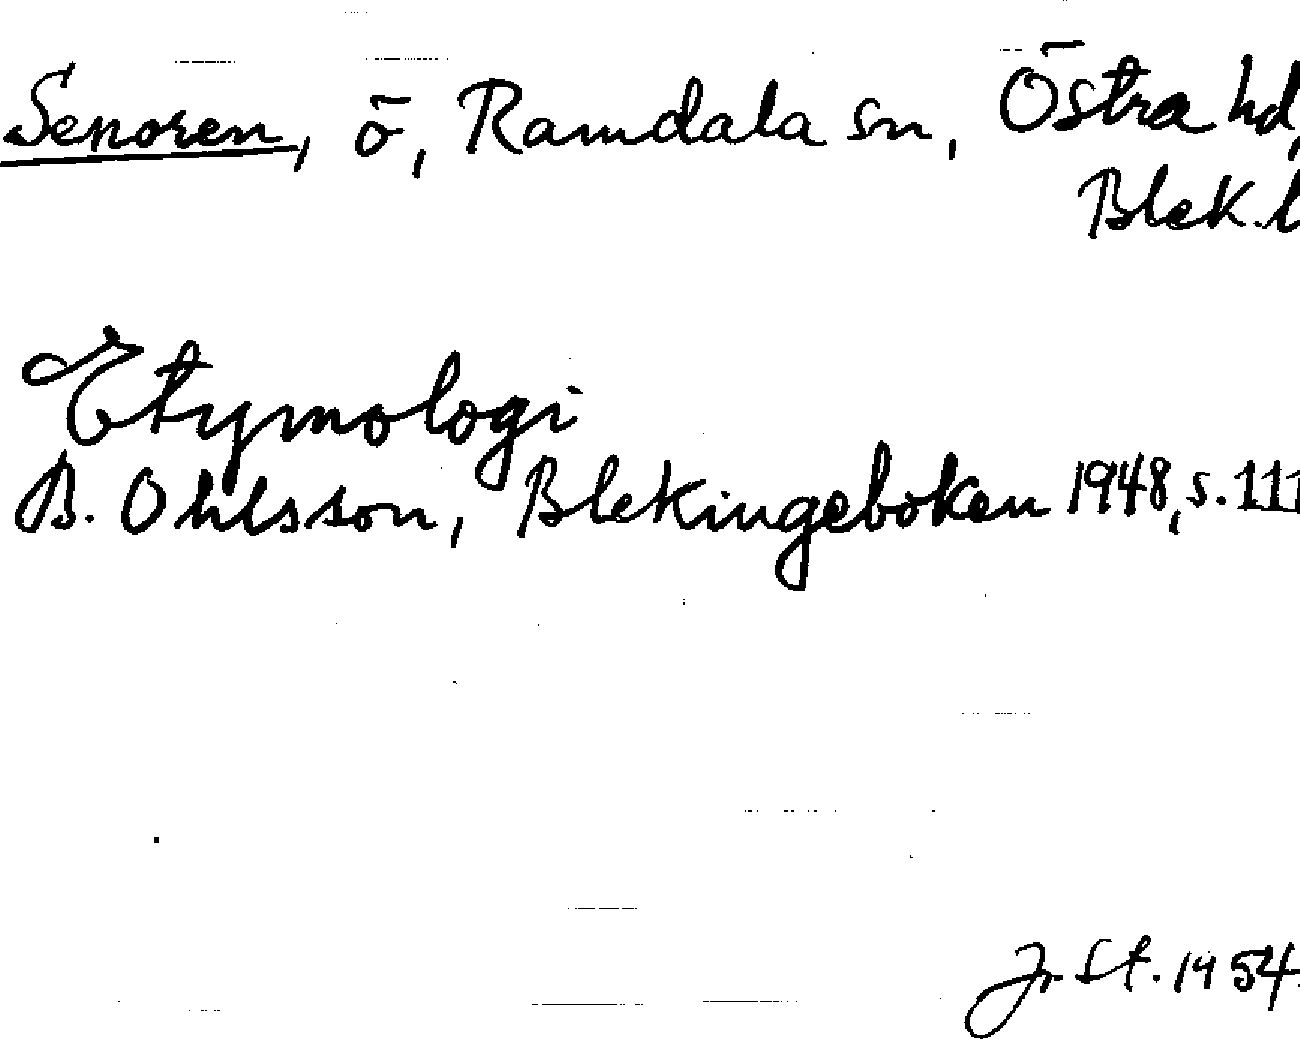 Senoren, ö, Ramdala sn, Östra hd,
Blek. l
Etymologi
B. Ohlsson, Blekingeboken 1948, s. 111
J. St. 1954.